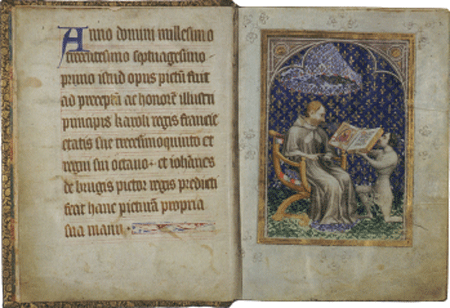 Anno domini millesimo
trecentesimo septuagesimo
primo istud opus pictū fuit
ad preceptū ac honorē illustri
principis karoli regis francie
etatis sue tricesimoquinto et
regni sui octauo · et iohannes
de brugis pictor regis predicti
fecit hanc picturā propria
sua manu